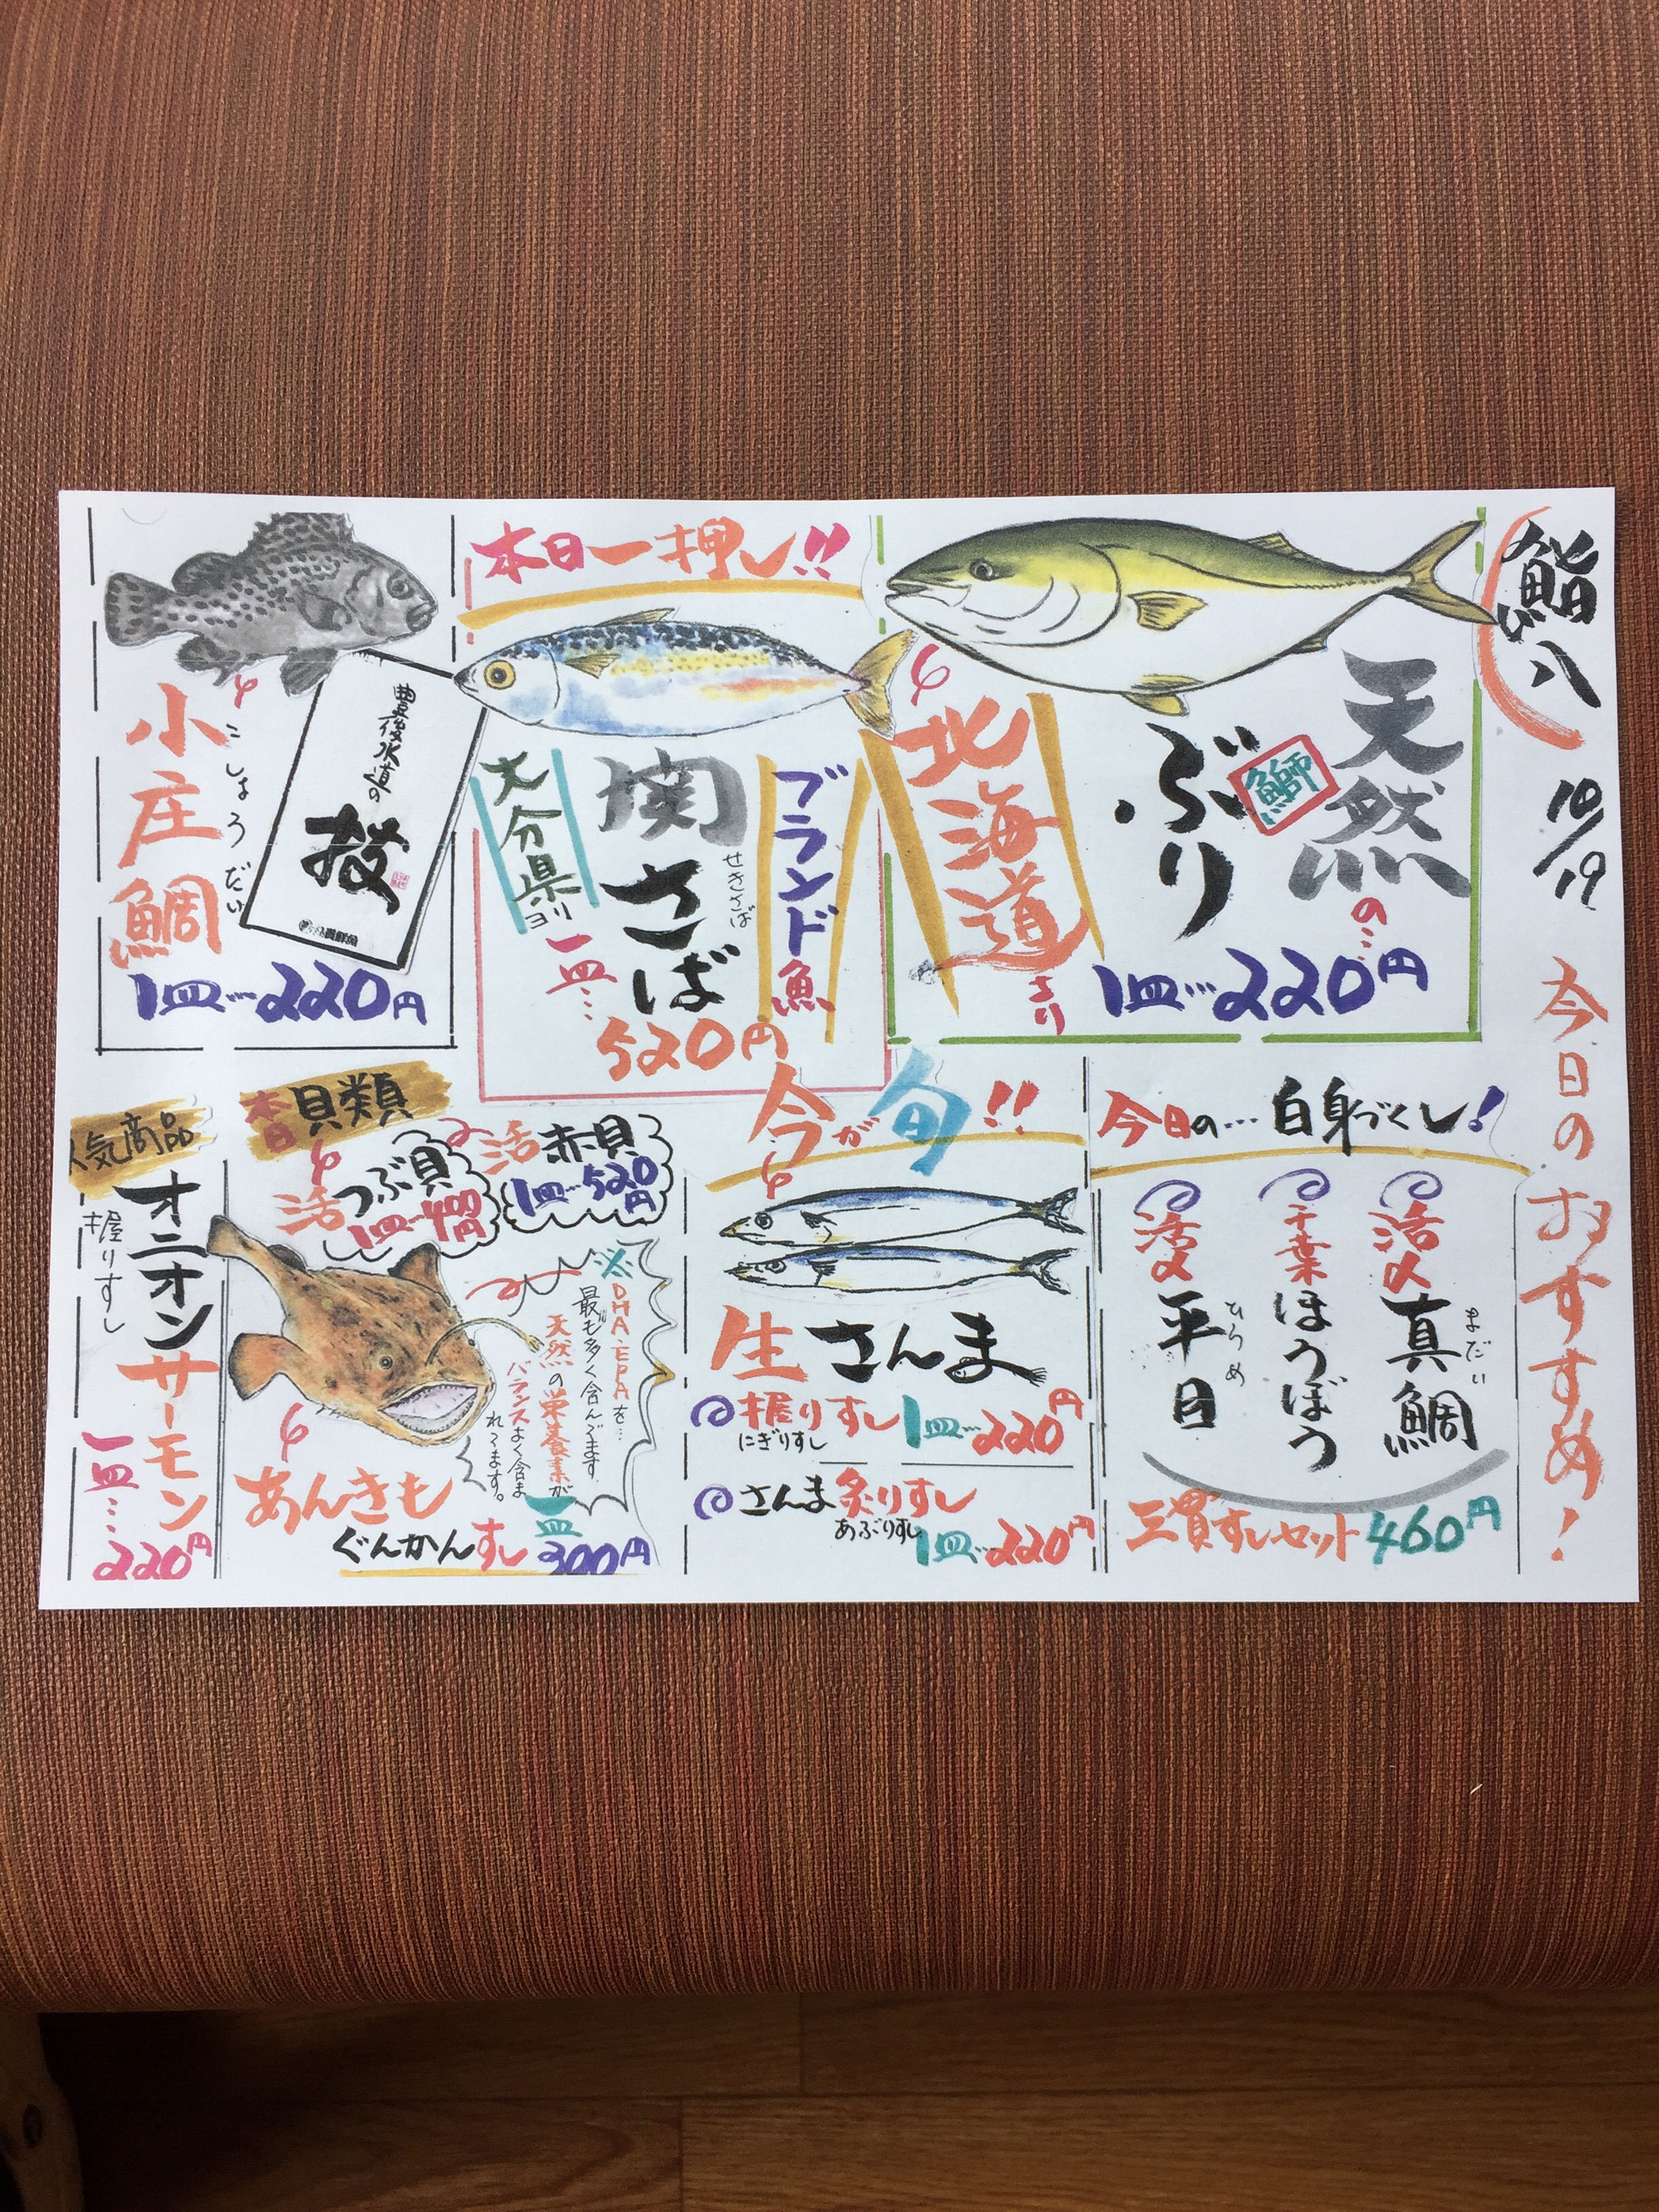 鮨八
10/19
今日のおすすめ!
天然の…
ぶり
鰤
北海道
より
1皿…220円
本日一押し!!
ブランド魚
関さば
せきさば
大分県ヨリ
一皿…
520円
小庄鯛
こしょうだい
豊後水道の
技
1皿…220円
今日の…白身づくし!
活〆真鯛
まだい
千葉ほうぼう
活〆平目
ひらめ
三貫すしセット460円
今が旬!!
生さんま
握りすし 1皿…220円
にぎりすし
さんま炙りすし
あぶりすし
1皿…220円
本日貝類
活赤貝
1皿…520円
活つぶ貝
1皿…400円
※DHA・EPAを…
最も多く含んでます
天然の栄養素が
バランスよく含ま
れてます。
あんきも
ぐんかんすし
一皿
300円
人気商品
オニオンサーモン
握りすし
一皿…
220円